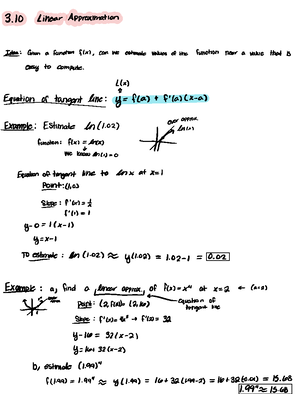 3.10 Linear Approximation
Idea: Given a function f(x), can we estimate values of the function near a value that is
easy to compute.
L(x)
Equation of tangent line: y = f(a) + f'(a)(x-a)
Example: Estimate ln(1.02)
over approx.
ln(1.02)
function: f(x) = ln(x)
We know ln(1) = 0
Equation of tangent line to ln x at x=1
Point: (1,0)
Slope: f'(x) = 1/x
f'(1) = 1
y-0 = 1(x-1)
y = x-1
To estimate: ln(1.02) ≈ y(1.02) = 1.02-1 = 0.02
Example: a) find a linear approx. of f(x) = x⁴ at x=2 ← (a=2)
Point: (2, f(2)) = (2,16)
equation of
tangent line
Slope: f'(x) = 4x³ → f'(2) = 32
y-16 = 32(x-2)
y = 16+32(x-2)
b) estimate (1.99)⁴
f(1.99) = 1.99⁴ ≈ y(1.99) = 16+32(1.99-2) = 16+32(-0.01) = 15.68
1.99⁴ ≈ 15.68